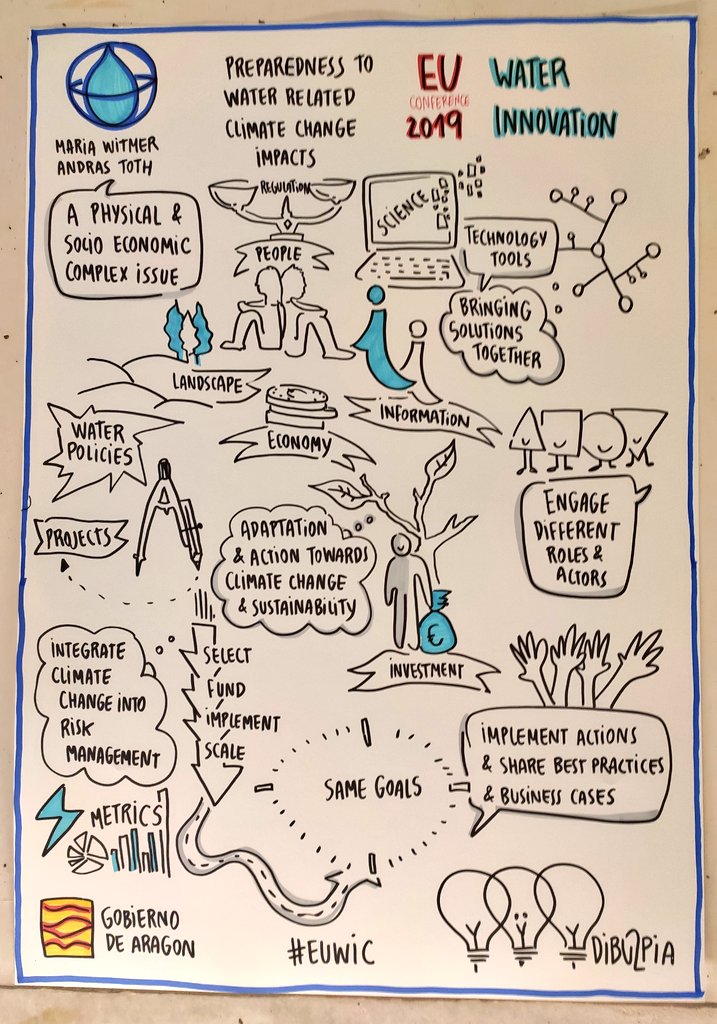 PREPAREDNESS TO
WATER RELATED
CLIMATE CHANGE
IMPACTS
EU
CONFERENCE
2019
WATER
INNOVATION
MARIA WITMER
ANDRAS TOTH
A PHYSICAL &
SOCIO ECONOMIC
COMPLEX ISSUE
REGULATION
PEOPLE
SCIENCE
TECHNOLOGY
TOOLS
BRINGING
SOLUTIONS
TOGETHER
LANDSCAPE
ECONOMY
INFORMATION
WATER
POLICIES
PROJECTS
ADAPTATION
& ACTION TOWARDS
CLIMATE CHANGE
& SUSTAINABILITY
ENGAGE
DIFFERENT
ROLES &
ACTORS
€
INVESTMENT
INTEGRATE
CLIMATE
CHANGE INTO
RISK
MANAGEMENT
SELECT
FUND
IMPLEMENT
SCALE
SAME GOALS
IMPLEMENT ACTIONS
& SHARE BEST PRACTICES
& BUSINESS CASES
METRICS
GOBIERNO
DE ARAGON
#EUWIC
DIBU2PIA